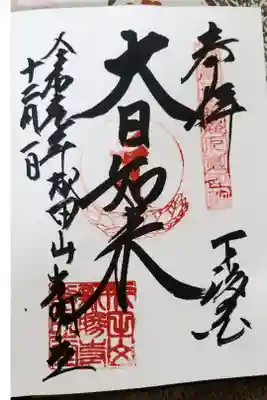 奉拝
下総国
大日如来
令和元年成田山光明堂
十二月一日